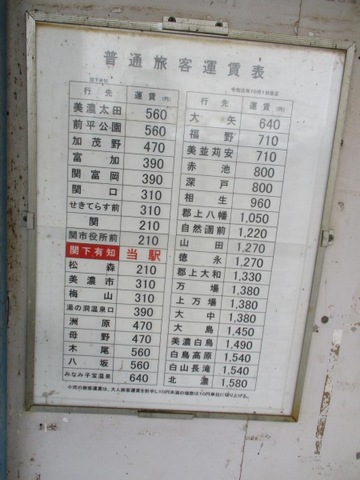 普通旅客運賃表
関下有知
令和元年10月1日改定
行先 運賃(円)
美濃太田 560
前平公園 560
加茂野 470
富加 390
関富岡 390
関口 310
せきてらす前 310
関 210
関市役所前 210
関下有知 当駅
松森 210
美濃市 310
梅山 310
湯の洞温泉口 390
洲原 470
母野 470
木尾 560
八坂 560
みなみ子宝温泉 640
行先 運賃(円)
大矢 640
福野 710
美並苅安 710
赤池 800
深戸 800
相生 960
郡上八幡 1,050
自然園前 1,220
山田 1,270
徳永 1,270
郡上大和 1,330
万場 1,380
上万場 1,380
大中 1,380
大島 1,450
美濃白鳥 1,490
白鳥高原 1,540
白山長滝 1,540
北濃 1,580
小児の旅客運賃は、大人旅客運賃を折半し10円未満の端数は10円単位に切り上げる。